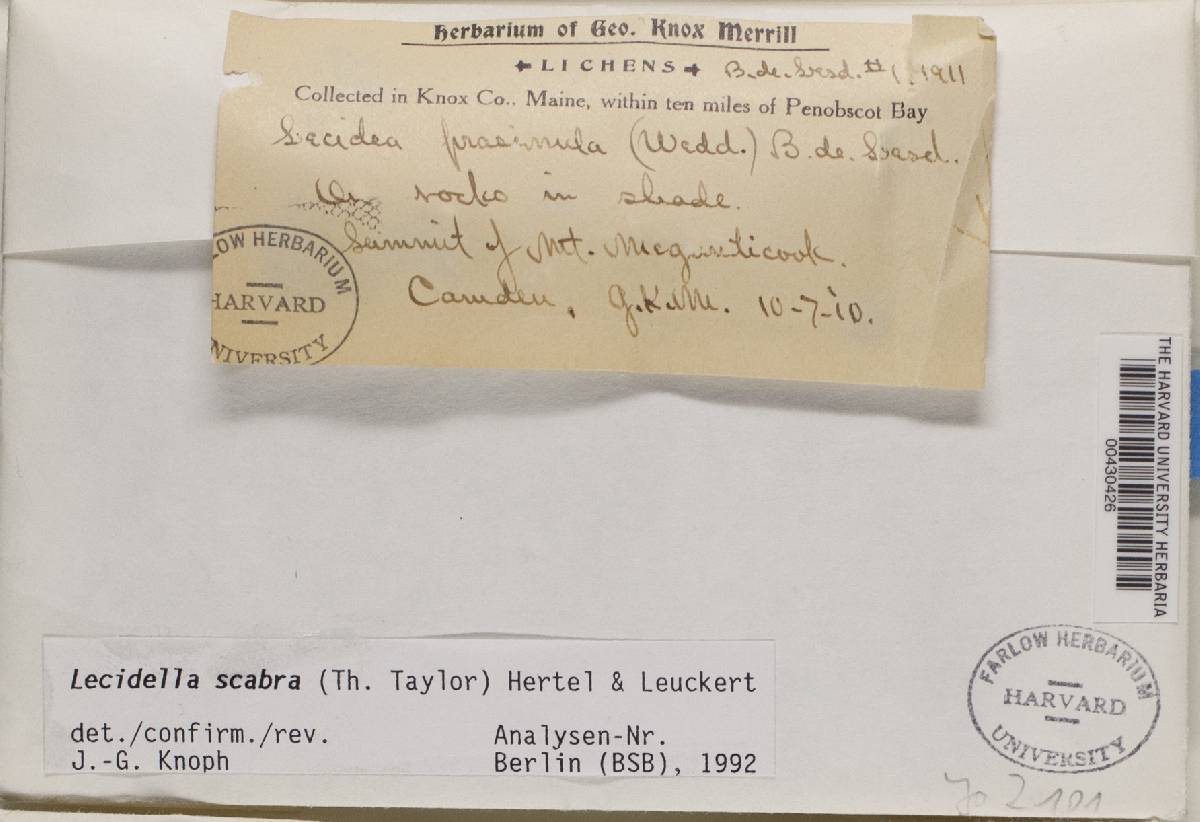 Herbarium of Geo. Knox Merrill
LICHENS B. de. Lesd. #1. 1911
Collected in Knox Co., Maine, within ten miles of Penobscot Bay
Lecidea prasinula (Wedd.) B. de. Lesd.
On rocks in shade.
Summit of Mt. Megunticook.
Camden, G.K.M. 10-7-'10.
LOW HERBARIUM
HARVARD
UNIVERSITY
THE HARVARD UNIVERSITY HERBARIA
00430426
Lecidella scabra (Th. Taylor) Hertel & Leuckert
det./confirm./rev. Analysen-Nr.
J.-G. Knoph Berlin (BSB), 1992
FARLOW HERBARIUM
HARVARD
UNIVERSITY